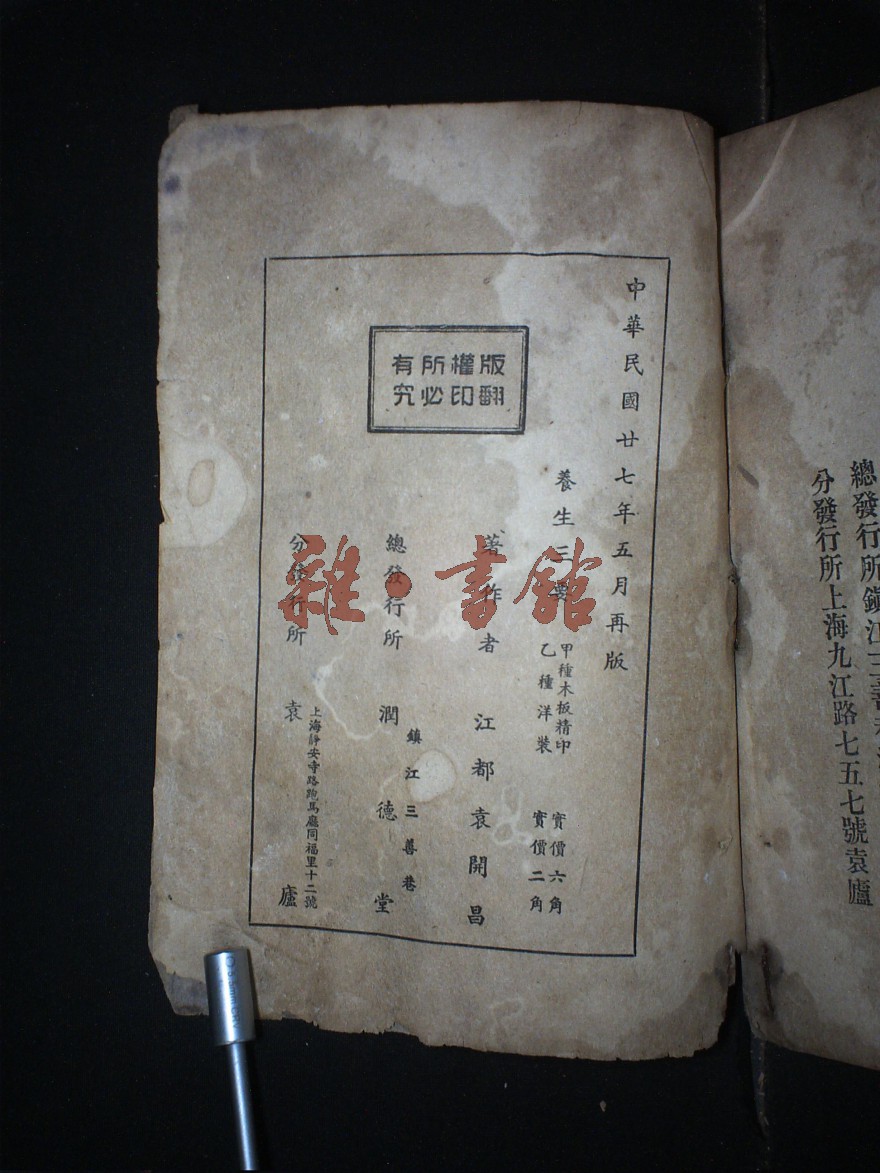 中華民國廿七年五月再版
版權所有
翻印必究
養生三要
甲種木板精印 實價六角
乙種洋裝 實價二角
著作者 江都袁開昌
總發行所 潤德堂
鎮江三善巷
分發行所 袁廬
上海靜安寺路跑馬廳同福里十二號
總發行所鎮江三善巷
分發行所上海九江路七五七號袁廬
雜·書館